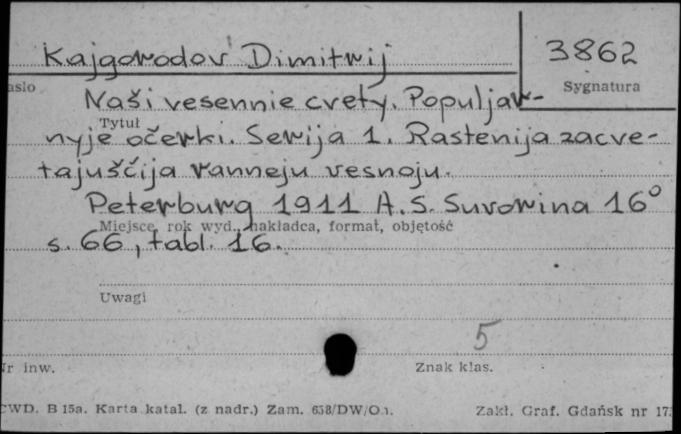 Kajgorodov Dimitrij
3862
asło
Sygnatura
Naši vesennie cvety. Populjar-
Tytuł
nyje očerki. Serija 1. Rastenija zacve-
tajuščija ranneju vesnoju.
Peterburg 1911 A.S. Suvorina 16°
Miejsce, rok wyd., nakładca, format, objętość
s. 66, tabl. 16.
Uwagi
5
Nr inw.
Znak klas.
CWD. B 15a. Karta katal. (z nadr.) Zam. 638/DW/O
Zakł. Graf. Gdańsk nr 17